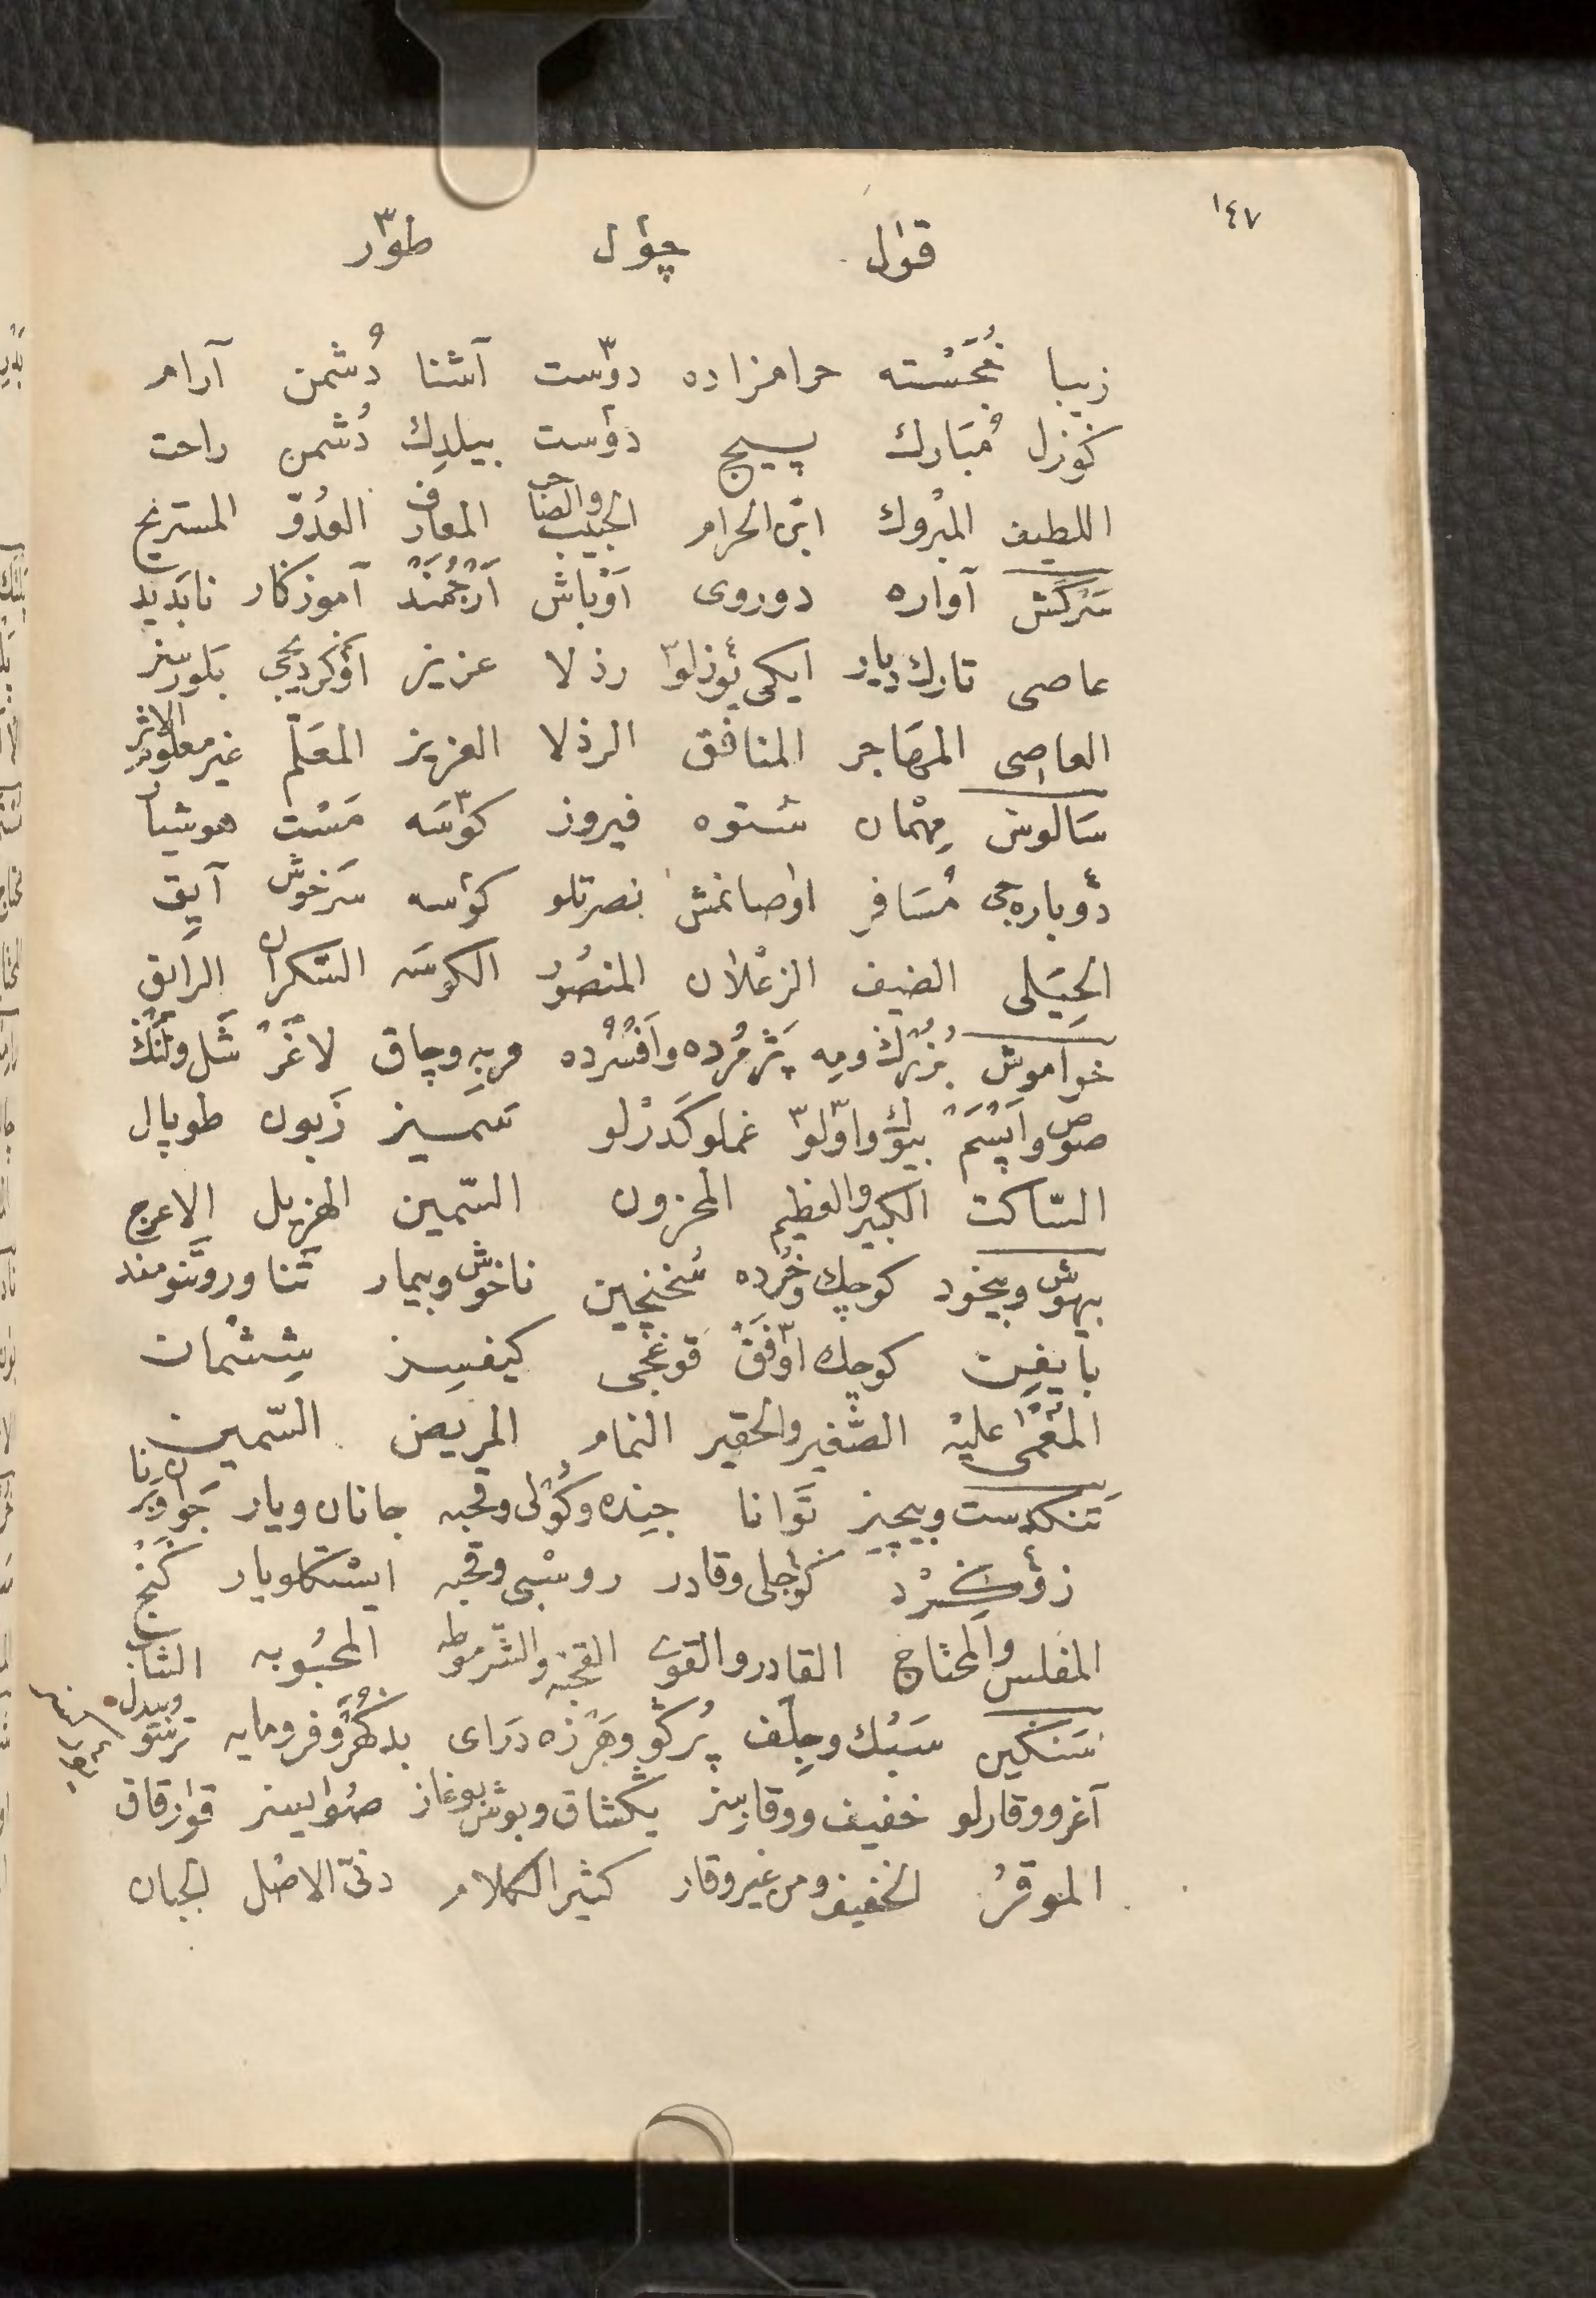 ١٤٧
قول چول طور
زيبا خُجَسْته حرامزاده دوست آشنا دُشمن آرام
كوزل مُبَارك پيچ دوست بيلدك دُشمن راحت
اللطيف المبْروك ابن الحرام الحبيب والصاحب المعارف العدُوّ المستريح
سَركَش آواره دوروى اَوْباش اَرْجُمَنْد آموزكار ناپَديد
عاصى تارك ديار ايكى يوزلو رذلا عزيز اوكرديجى بَلورسز
العاصى المهَاجر المنافق الرذلا العزيز المعَلّم غير معلوم الاثر
سَالوس مِهْمان ستوه فيروز كوسَه مَسْت هوشيار
دوباره جى مُسَافر اوصانمش نصرتلو كوسه سَرخوش آيق
الحِيَلى الضيف الزعْلان المنصُور الكوسَه السّكران الرائق
خواموش بُزُرْك ومِه پَژمُرده واَفْسُرْده فربِه وچاق لاغَر شَل ولَنْك
صوص واَپْسَمْ بيوك واولو غملو كَدَرْلو سَميز زَبون طوپال
السّاكت الكبير والعظيم المحزون السّمين الهزيل الاعرج
بيهوش وبيخود كوچك وخُرده سُخنچين ناخوش وبيمار تَناور وتَنومند
بايغِن كوچك اوفَقْ قوغجى كيفسِز شِشْمان
المغْمى عليْه الصَّغير والحقير النمام المريض السّمين
تَنكدست وبيچيز تَوانا جنده وكَوْلى وقحبه جانان ويار جَوان وبَرنا
زوكُرْد كوجلى وقادر روسْبى وقحبه ايسْتكلو يار كَنج
المفلس والمحتاج القادر والقوى القحبَه والشّرموطه المحبُوبه الشاب
سَنكين سَبُك وجِلْف پُركَو وهَرْزه دَراى بدكُهَر وفرومايه تَرسَو وبيدل
آغر ووقارلو خفيف ووقارسز يكشاق وبوش بوغاز صُوايسز قورقاق
الموقرُ الخفيف ومن غير وقار كثير الكلام دنىّ الاصْل الجبان